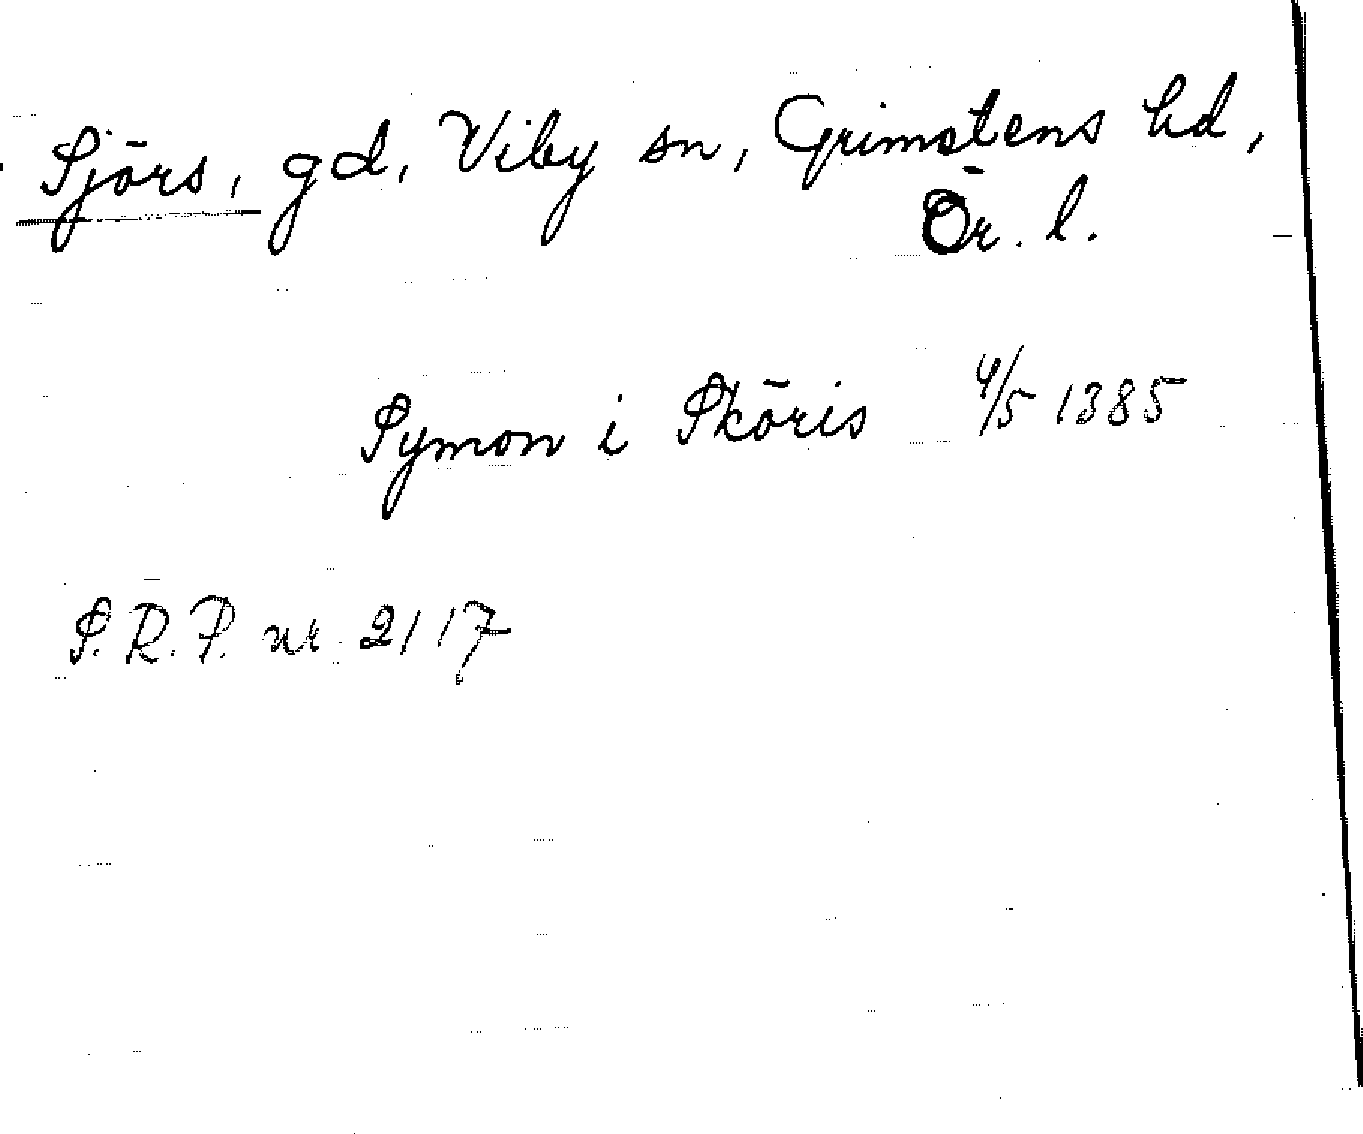 Sjörs, gd, Viby sn, Grimstens hd,
Ör. l.
Symon i Sköris 4/5 1385
S.R.P. nr 2117